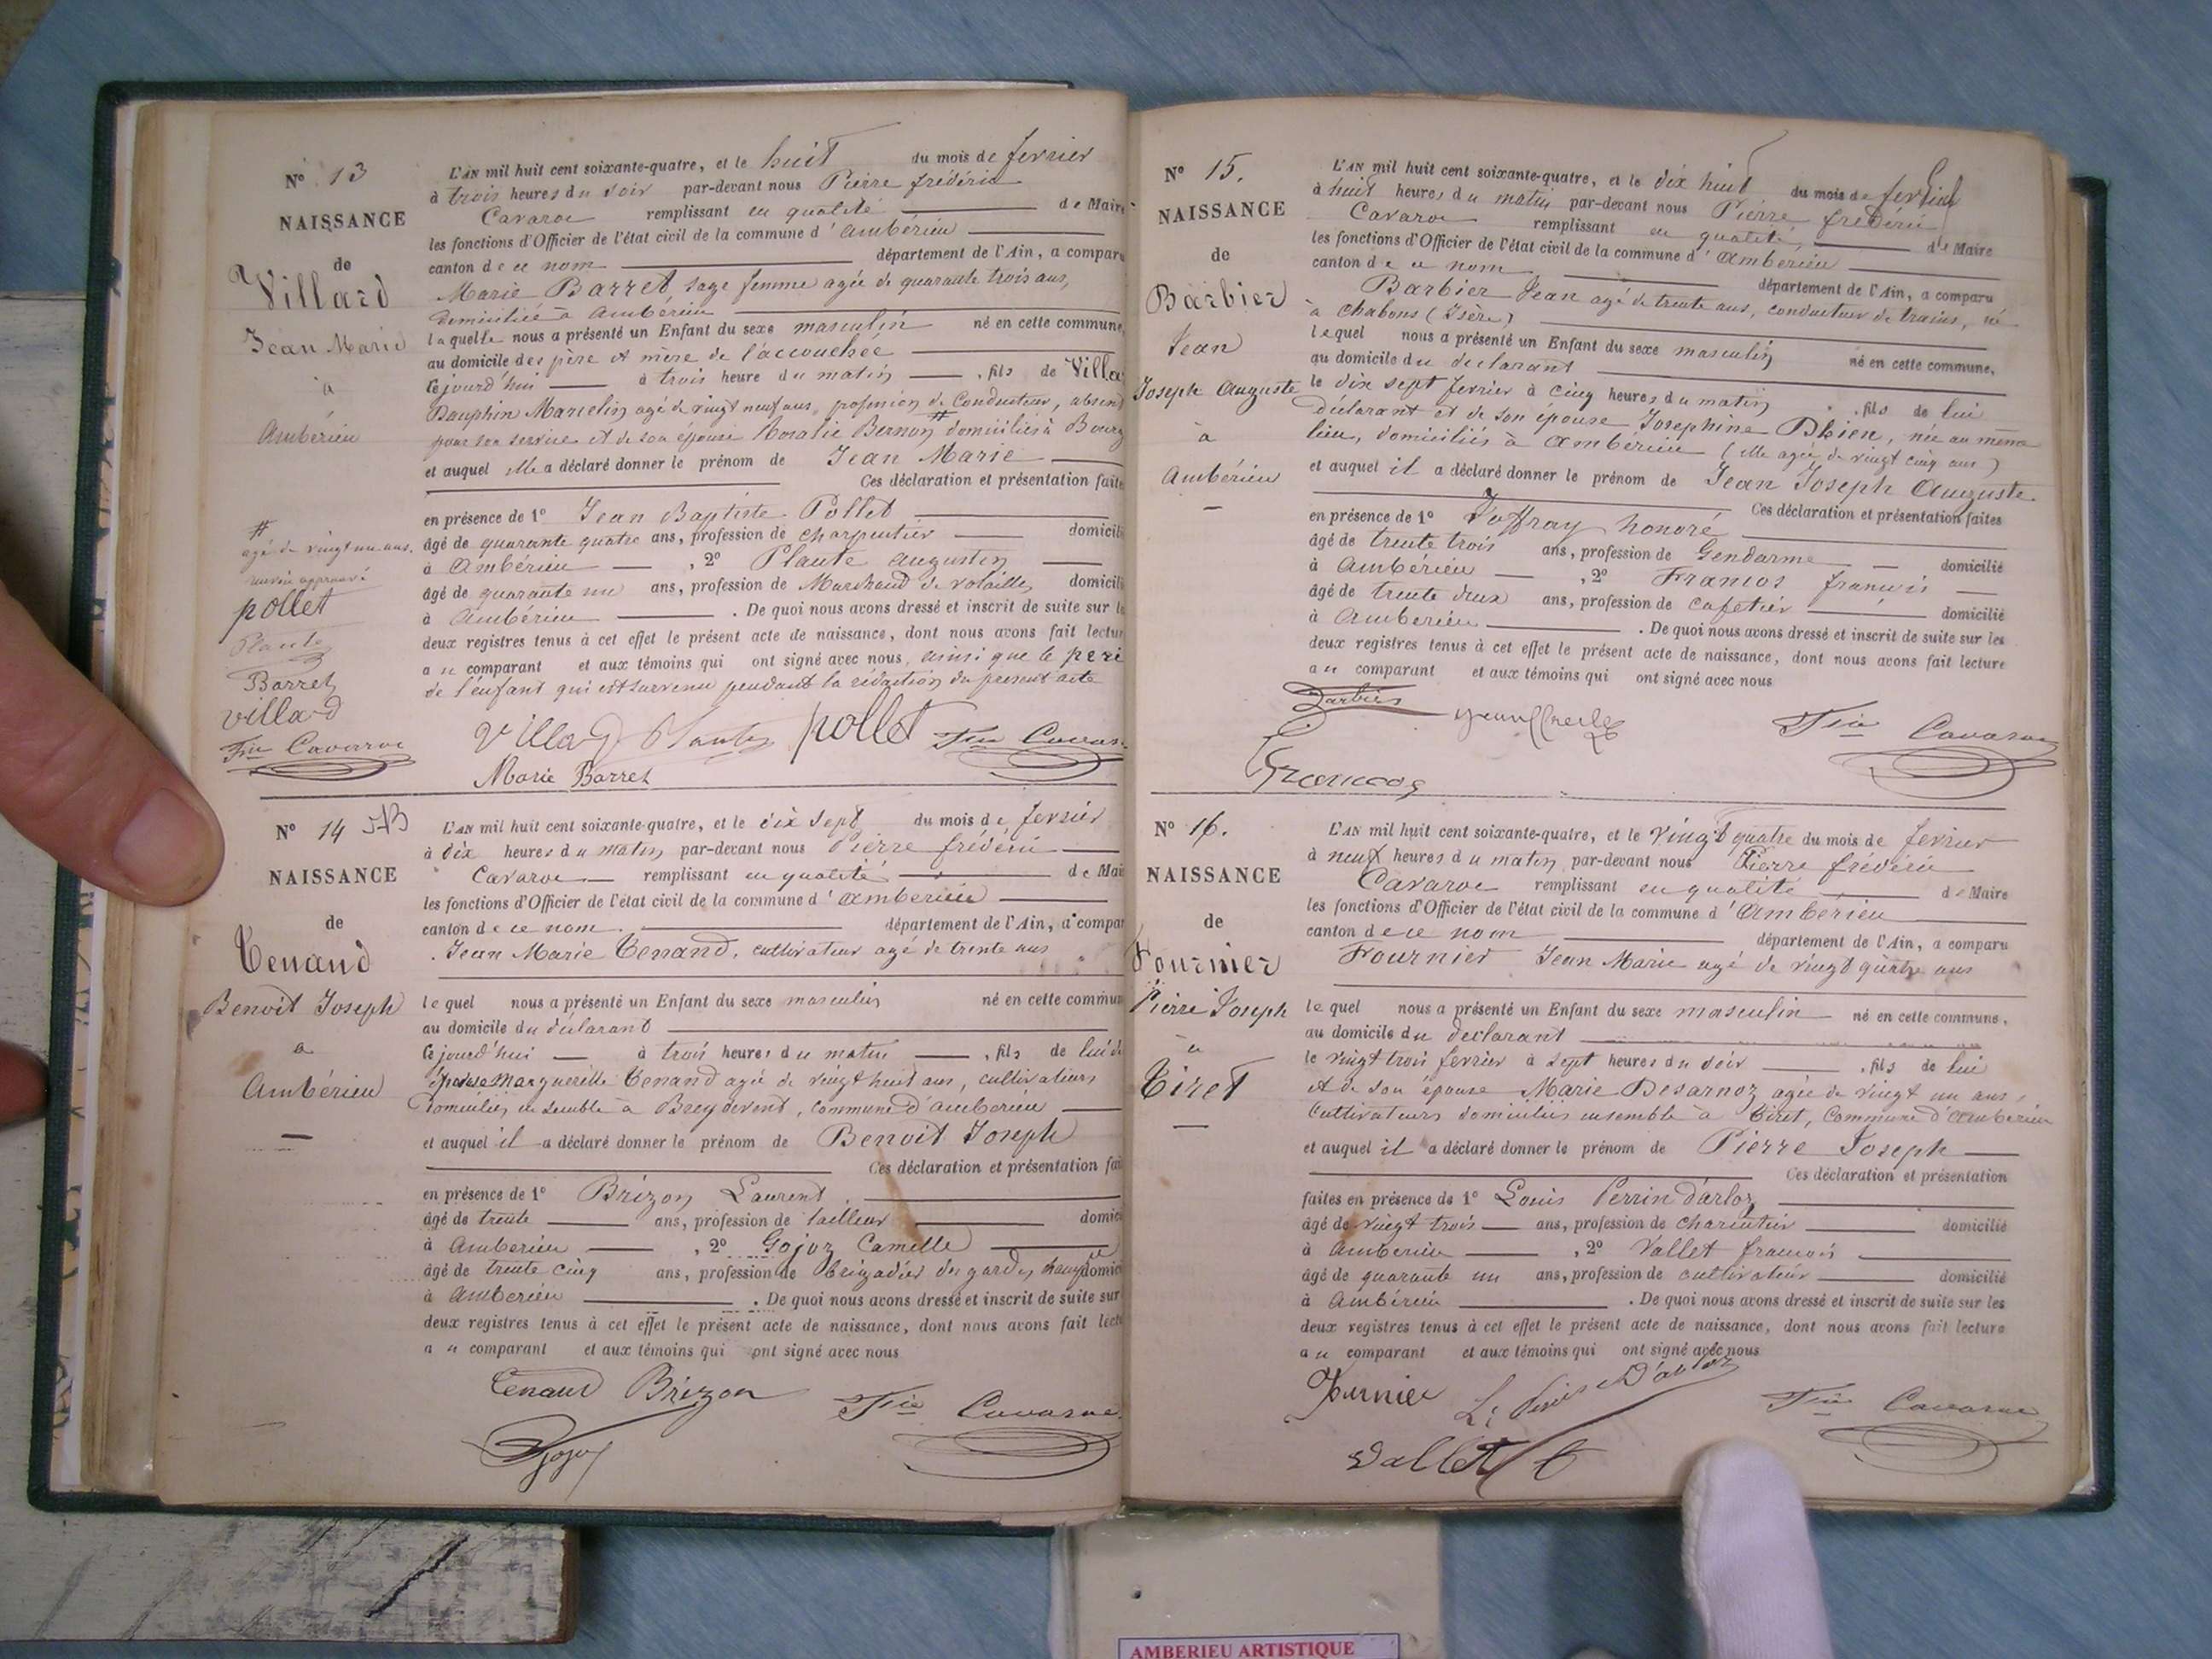 N° 13
NAISSANCE
de
Villard
Jean Marie
à
Ambérieu
#
agé de vingt un ans.
pollet
Plante
Barret
villard
Cavaroc
L'AN mil huit cent soixante-quatre, et le huit du mois de fevrier
à trois heures du soir par-devant nous Pierre frédéric
Cavaroc remplissant en qualité de Maire
les fonctions d'Officier de l'état civil de la commune d'ambérieu
canton de ce nom département de l'Ain, a comparu
Marie Barret, sage femme agée de quarante trois ans,
domiciliée à ambérieu
laquelle nous a présenté un Enfant du sexe masculin né en cette commune,
au domicile des père et mère de l'accouchée
cejourd'hui à trois heure du matin, fils de Villa
Dauphin Marcelin agé de vingt neuf ans, profession de Conducteur, absent
pour son service et de son épouse Rosalie Bernon # domiciliés à Bourg
et auquel elle a déclaré donner le prénom de Jean Marie
Ces déclaration et présentation faite
en présence de 1° Jean Baptiste Pollet
âgé de quarante quatre ans, profession de charpentier domicili
à Ambérieu, 2° Plante augustin
âgé de quarante un ans, profession de Marchand de volailles domicili
à Ambérieu. De quoi nous avons dressé et inscrit de suite sur le
deux registres tenus à cet effet le présent acte de naissance, dont nous avons fait lectur
au comparant et aux témoins qui ont signé avec nous, ainsi que le pere
de l'enfant qui est survenu pendant la rédaction du present acte
Villard Plante pollet Cavaroc
Marie Barret
N° 14
NAISSANCE
de
Tenand
Benoit Joseph
a
Ambérieu
L'AN mil huit cent soixante-quatre, et le dix sept du mois de fevrier
à dix heures du matin par-devant nous Pierre frédéric
Cavaroc remplissant en qualité de Mai
les fonctions d'Officier de l'état civil de la commune d'amberieu
canton de ce nom. département de l'Ain, a compar
Jean Marie Tenand, cultivateur agé de trente ans
lequel nous a présenté un Enfant du sexe masculin né en cette commun
au domicile du déclarant
cejourd'hui à trois heures du matin, fils de lui
épouse Marguerite Tenand agée de vingt huit ans, cultivateurs
domiciliés ensemble à Breydevent, commune d'amberieu
et auquel il a déclaré donner le prénom de Benoit Joseph
Ces déclaration et présentation fai
en présence de 1° Brizon Laurent
âgé de trente ans, profession de tailleur domici
à Amberieu, 2° Gojoz Camille
âgé de trente cinq ans, profession de brigadier des gardes domici
à Amberieu. De quoi nous avons dressé et inscrit de suite sur
deux registres tenus à cet effet le présent acte de naissance, dont nous avons fait lect
au comparant et aux témoins qui ont signé avec nous
Tenand Brizon Cavaroc
Gojoz
N° 15.
NAISSANCE
de
Barbier
Jean
Joseph Auguste
à
Ambérieu
L'AN mil huit cent soixante-quatre, et le dix huit du mois de fevrier
à huit heures du matin par-devant nous Pierre frédéric
Cavaroc remplissant en qualité de Maire
les fonctions d'Officier de l'état civil de la commune d'Ambérieu
canton de ce nom département de l'Ain, a comparu
Barbier Jean agé de trente ans, conducteur de trains, né
à Chabons (Isère)
lequel nous a présenté un Enfant du sexe masculin né en cette commune,
au domicile du declarant
le dix sept fevrier à cinq heures du matin, fils de lui
déclarant et de son épouse Josephine née au même
lieu, domiciliés à ambérieu (elle agée de vingt cinq ans)
et auquel il a déclaré donner le prénom de Jean Joseph Auguste
Ces déclaration et présentation faites
en présence de 1° Joffray honoré
âgé de trente trois ans, profession de Gendarme domicilié
à Ambérieu, 2° Francoz francois
âgé de trente deux ans, profession de cafetier domicilié
à Ambérieu. De quoi nous avons dressé et inscrit de suite sur les
deux registres tenus à cet effet le présent acte de naissance, dont nous avons fait lecture
au comparant et aux témoins qui ont signé avec nous
Barbier Cavaroc
Francoz
N° 16.
NAISSANCE
de
Fournier
Pierre Joseph
à
Tiret
L'AN mil huit cent soixante-quatre, et le vingt quatre du mois de fevrier
à neuf heures du matin par-devant nous Pierre frédéric
Cavaroc remplissant en qualité de Maire
les fonctions d'Officier de l'état civil de la commune d'Ambérieu
canton de ce nom département de l'Ain, a comparu
Fournier Jean Marie agé de vingt quatre ans
lequel nous a présenté un Enfant du sexe masculin né en cette commune,
au domicile du déclarant
le vingt trois fevrier à sept heures du soir, fils de lui
et de son épouse Marie Desarnoz agée de vingt un ans,
Cultivateurs domiciliés ensemble à Tiret, Commune d'Ambérieu
et auquel il a déclaré donner le prénom de Pierre Joseph
Ces déclaration et présentation
faites en présence de 1° Louis Perrin d'arloz
âgé de vingt trois ans, profession de charcutier domicilié
à Amberieu, 2° Vallet francois
âgé de quarante un ans, profession de cultivateur domicilié
à Ambérieu. De quoi nous avons dressé et inscrit de suite sur les
deux registres tenus à cet effet le présent acte de naissance, dont nous avons fait lecture
au comparant et aux témoins qui ont signé avec nous
Furnier D'arloz Cavaroc
Vallet f
AMBERIEU ARTISTIQUE